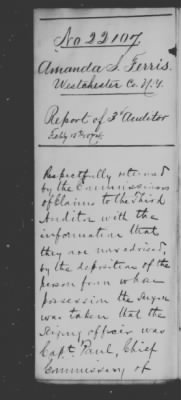 No 22107.
Amanda S. Ferris.
Westchester Co. N.Y.
Report of 3d Auditor
Feby 18th 1874
Respectfully returned
by the Commissioners
of Claims to the Third
Auditor with the
information that
they are now advised,
by the deposition of the
person from whose
possession the
was taken that the
officer was
Capt. Paul, Chief
Commissary of